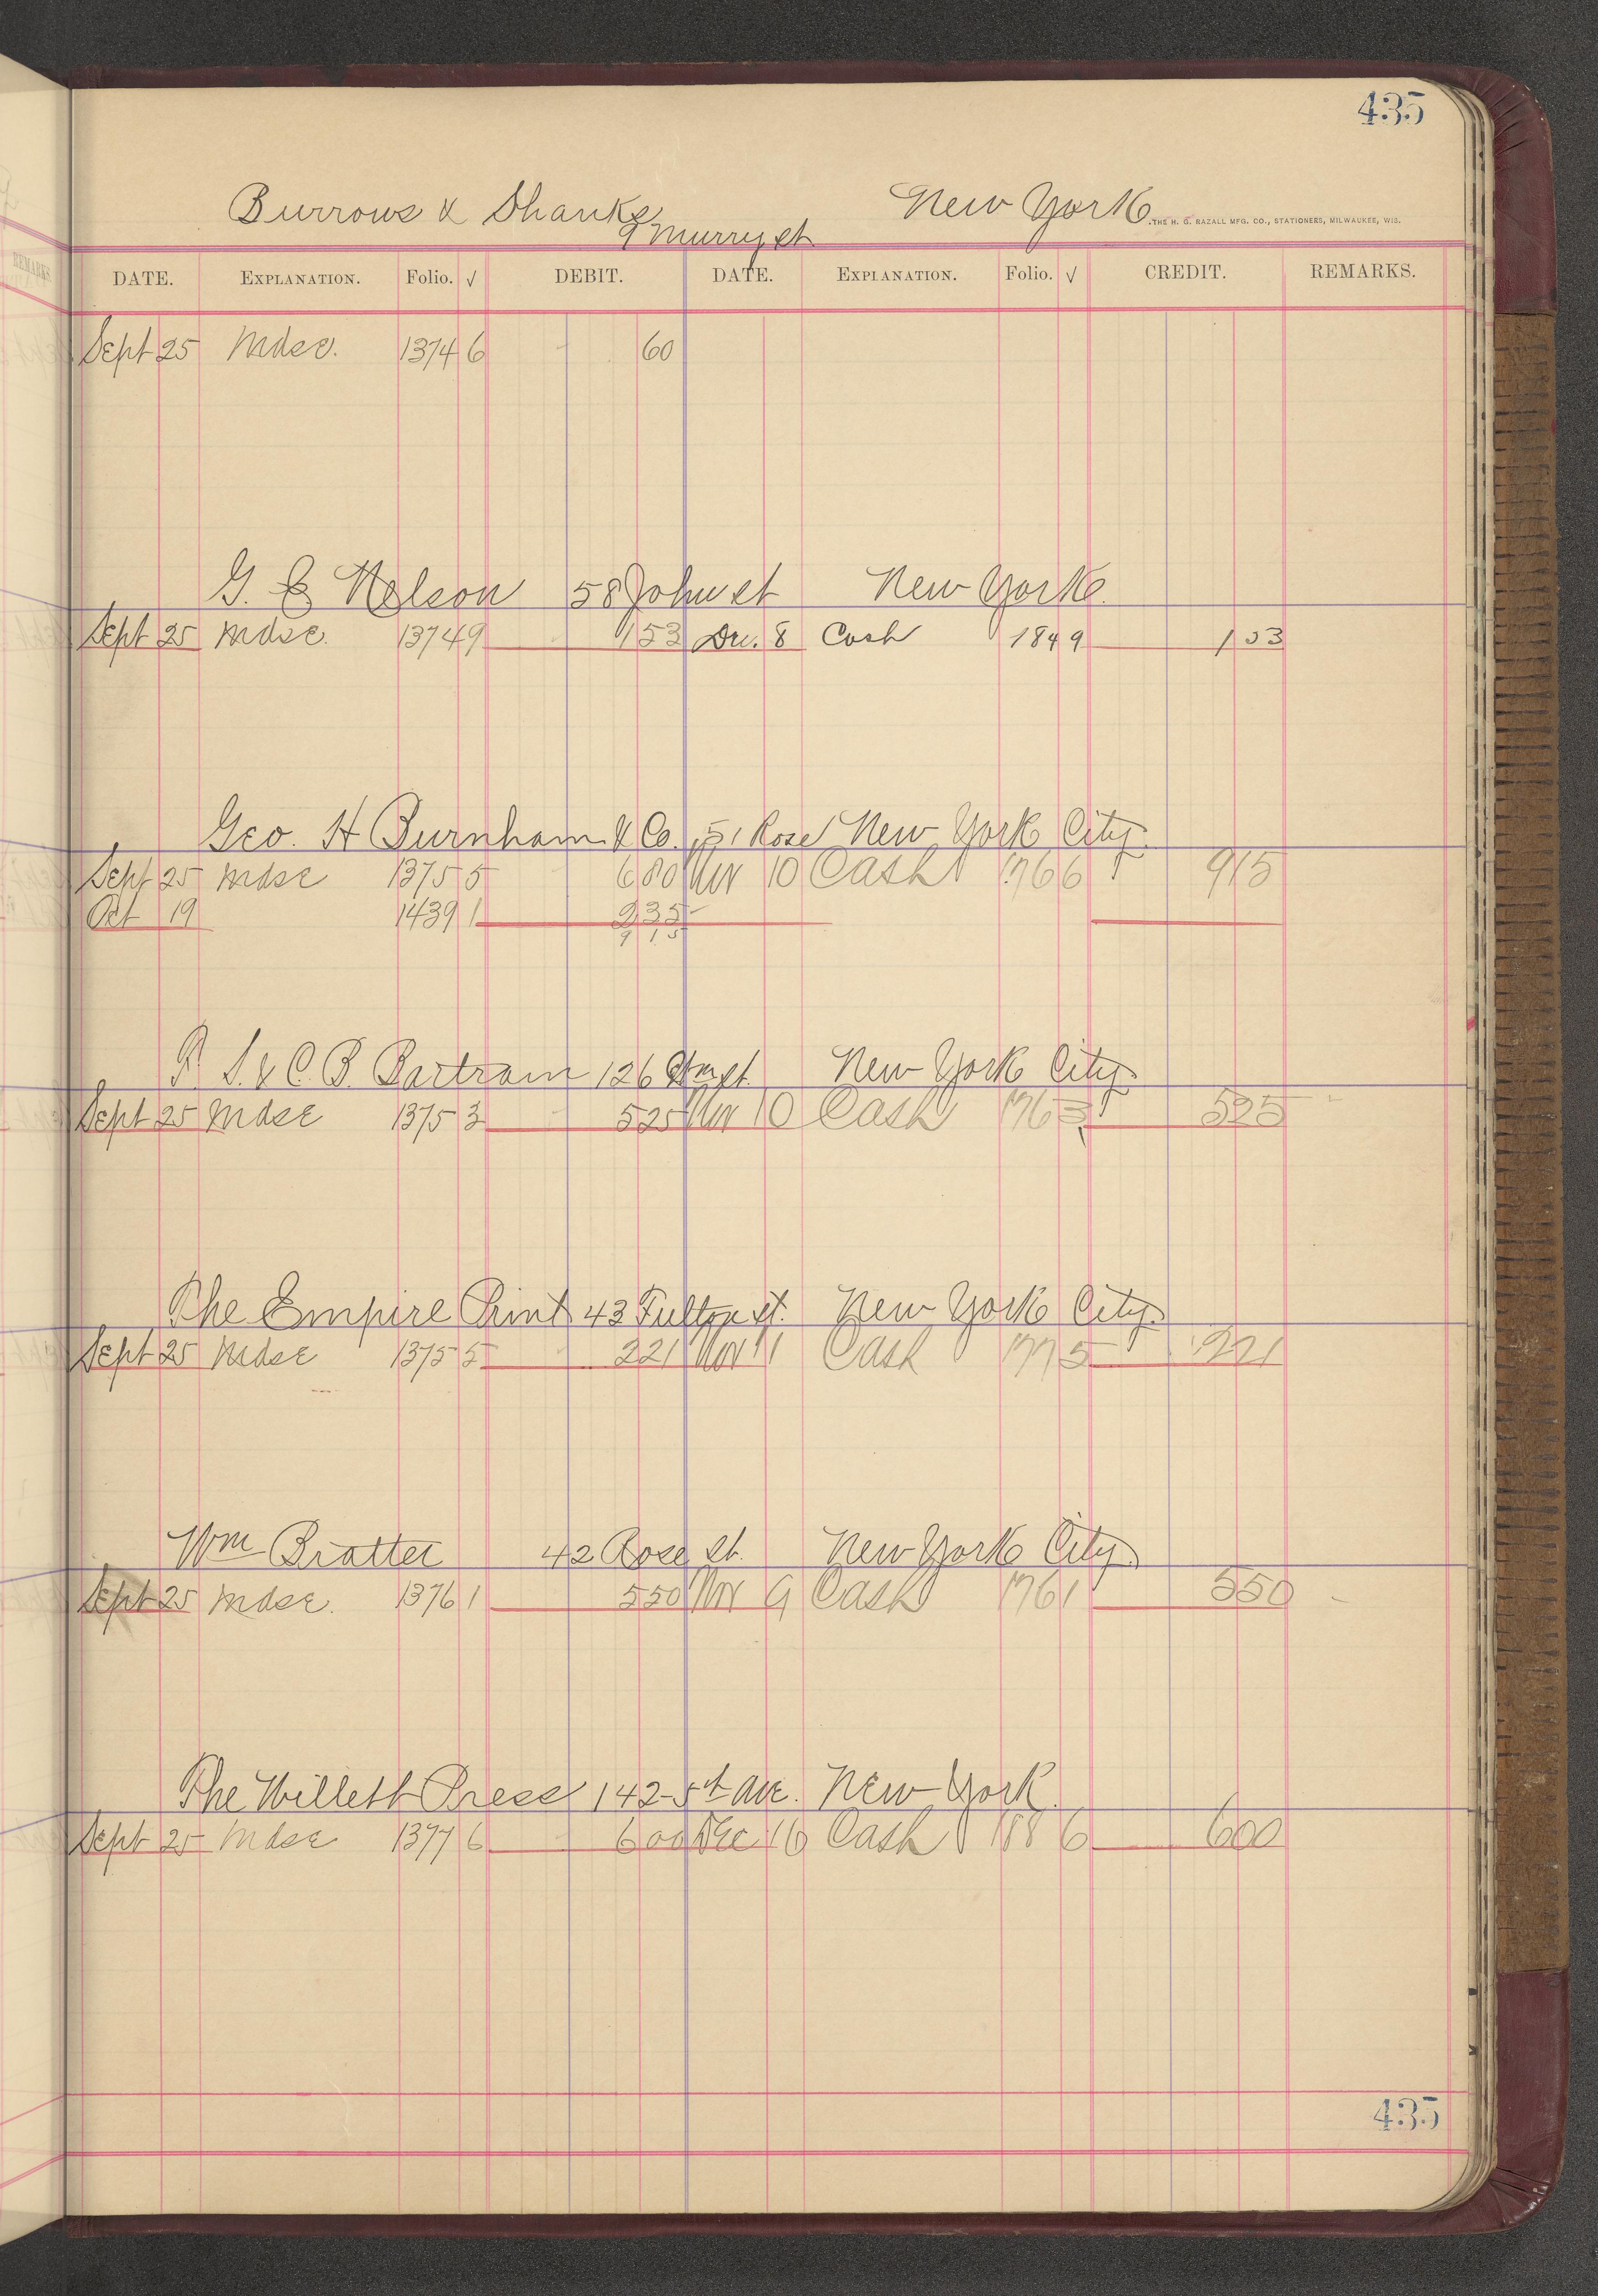 435
Burrows & Shanks New York
9 Murry st
THE H. G. RAZALL MFG. CO., STATIONERS, MILWAUKEE, WIS.
DATE. EXPLANATION. Folio. √ DEBIT. DATE. EXPLANATION. Folio. √ CREDIT. REMARKS.
Sept 25 Mdse. 13746 60
G. E Nelson 58 John st New York.
Sept 25 Mdse. 13749 153 Dec. 8 Cash 1849 153
Geo. H Burnham & Co. 51 Rose New York City.
Sept 25 Mdse 13755 680 Nov 10 Cash 1766 915
Oct 19 14391 235
915
P. S. & C. B. Bartram 126 Wm st. New York City
Sept 25 Mdse 13753 525 Nov 10 Cash 1763 525
The Empire Print 43 Fulton st. New York City.
Sept 25 Mdse 13755 221 Nov 11 Cash 1775 221
Wm Bratter 42 Rose st. New York City.
Sept 25 Mdse. 13761 550 Nov 9 Cash 1761 550
The Willett Press 142-5th Ave. New York.
Sept 25 Mdse 13776 600 Dec 16 Cash 1886 600
435